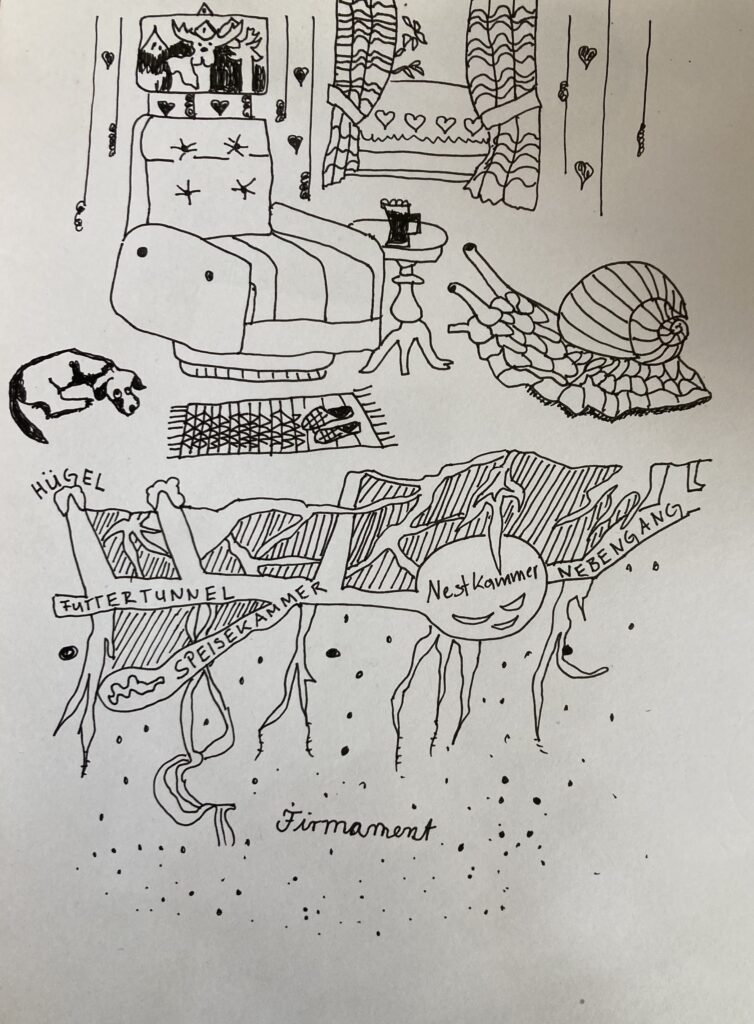 HÜGEL
FUTTERTUNNEL
SPEISEKAMMER
Nestkammer
NEBENGANG
Firmament